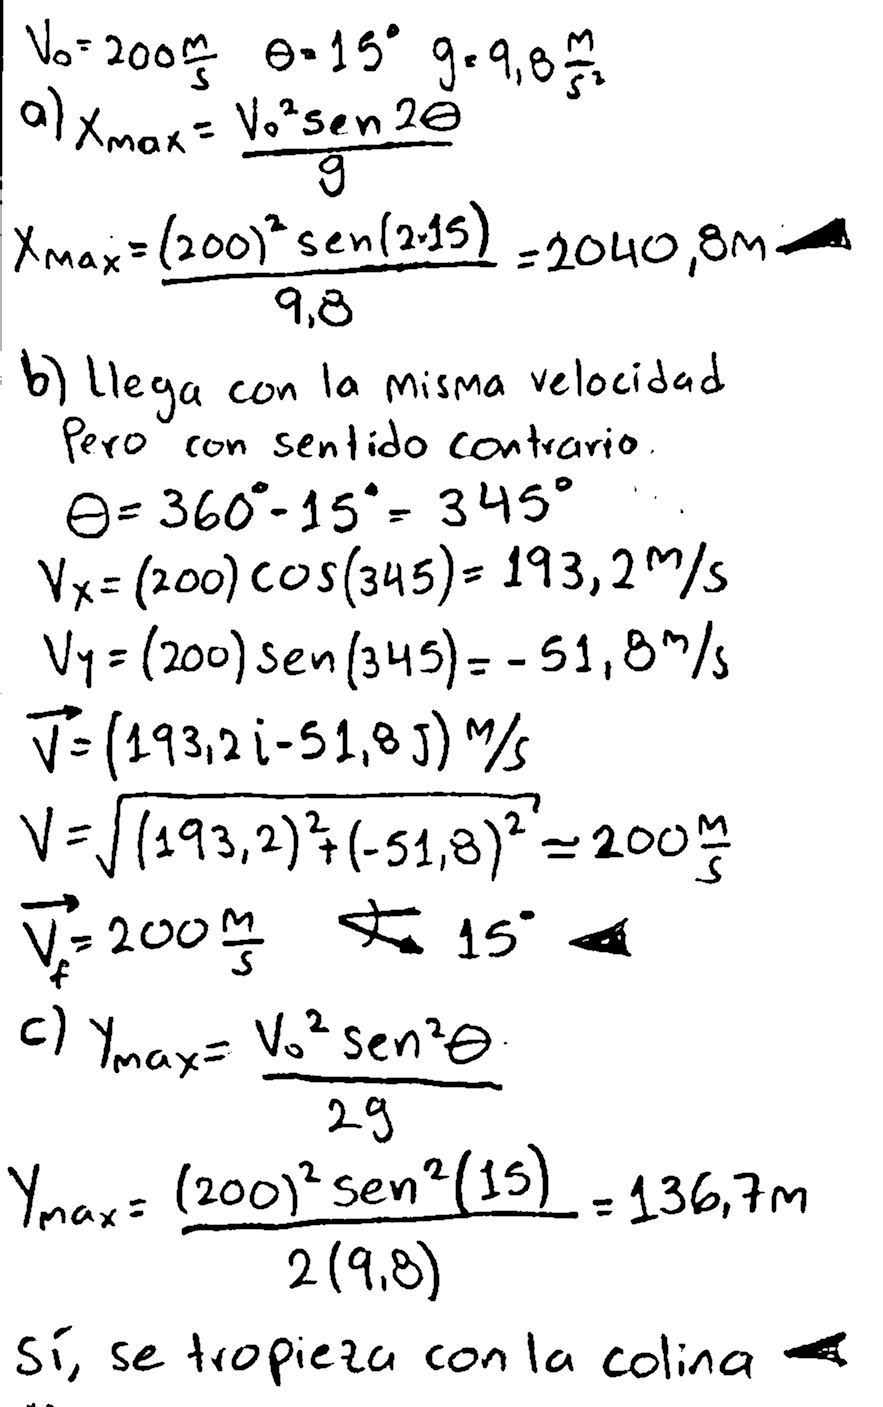 V₀=200 m/s θ=15° g=9,8 m/s²
a) Xmax= V₀² sen 2θ / g
Xmax= (200)² sen(2·15) / 9,8 =2040,8m
b) Llega con la misma velocidad
Pero con sentido contrario.
θ= 360°-15°= 345°
Vx=(200) cos(345)= 193,2 m/s
Vy=(200) sen(345)= -51,8 m/s
V⃗=(193,2i-51,8J) m/s
V=√((193,2)²+(-51,8)²) ≃200 m/s
V⃗f=200 m/s ∡ 15°
c) Ymax= V₀² sen²θ / 2g
Ymax= (200)² sen²(15) / 2(9,8) =136,7m
Sí, se tropieza con la colina